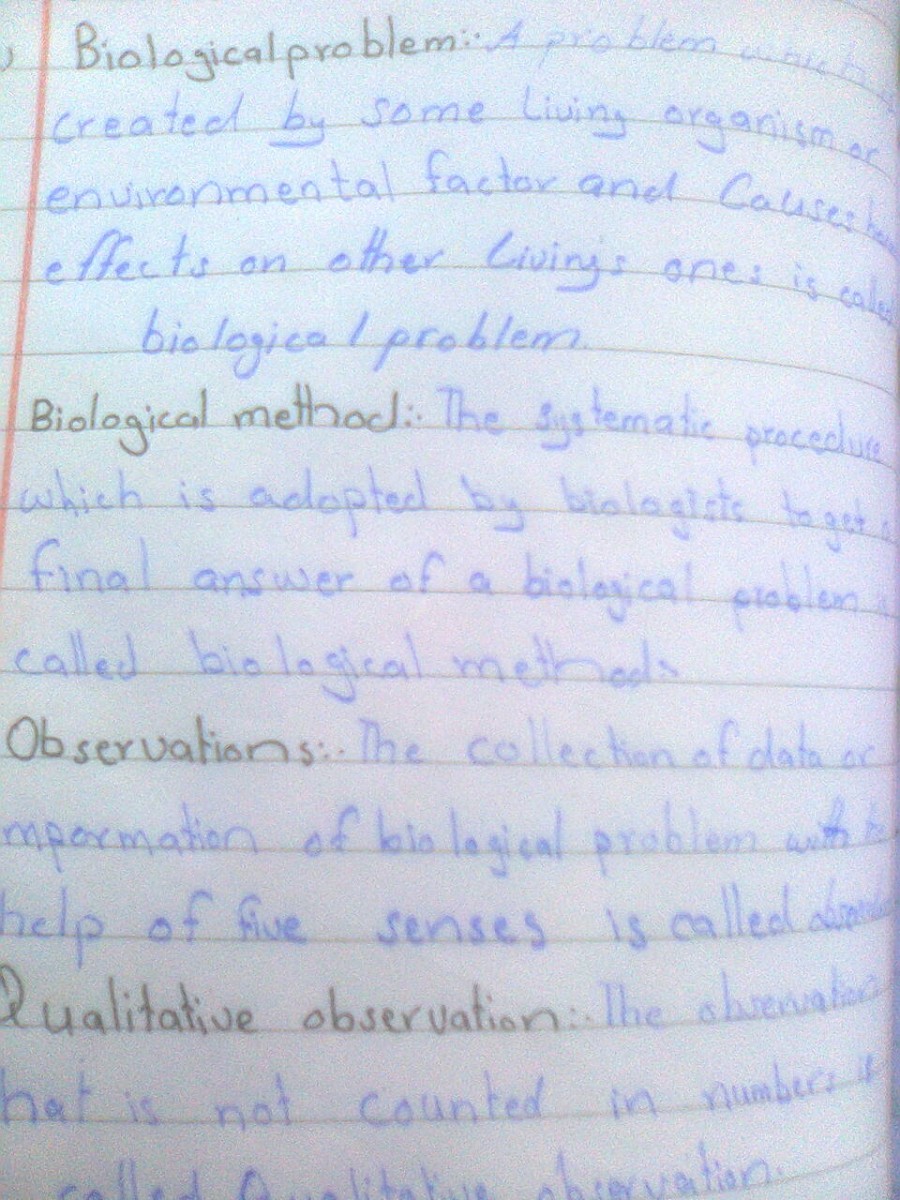 Biological problem:. A problem which
created by some living organism or
environmental factor and Causes
effects on other living's ones is called
biological problem.
Biological method:. The systematic procedure
which is adopted by biologists to get
final answer of a biological problem
called biological method:
Observations:. The collection of data or
mpormation of biological problem with the
help of five senses is called
Qualitative observation:. The observation
hat is not counted in numbers is
called Qualitative observation.